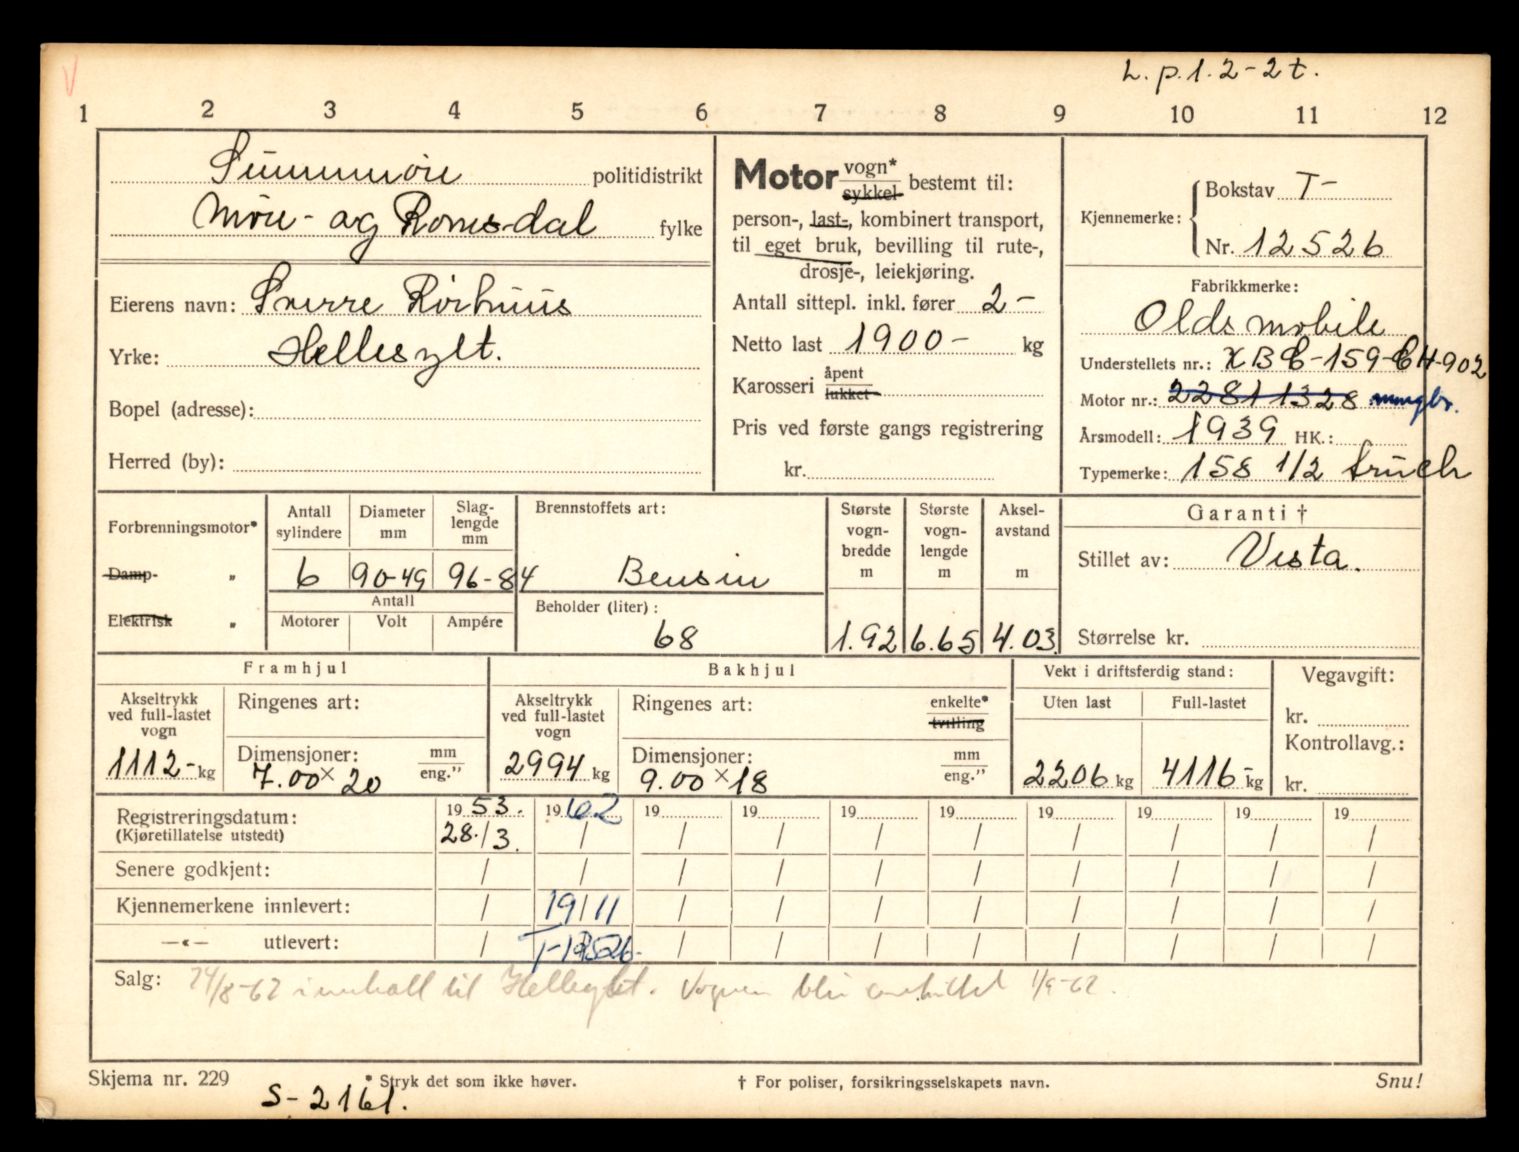 L.p.1.2-2t.
1 2 3 4 5 6 7 8 9 10 11 12
Sunnmøre politidistrikt
Møre- og Romsdal fylke
Eierens navn: Sverre Rørhuus
Yrke: Hellesylt.
Bopel (adresse):
Herred (by):
Motor vogn* sykkel bestemt til:
person-, last-, kombinert transport,
til eget bruk, bevilling til rute-,
drosje-, leiekjøring.
Antall sittepl. inkl. fører 2-
Netto last 1900- kg
Karosseri åpent lukket
Pris ved første gangs registrering
kr.
Kjennemerke: Bokstav T-
Nr. 12526
Fabrikkmerke:
Oldsmobile
Understellets nr.: XBC-159-CH-902
Motor nr.: 22811328
Årsmodell: 1939 HK.:
Typemerke: 158 1/2 truck
Forbrenningsmotor*
Damp- „
Elektrisk „
Antall sylindere Diameter mm Slag-lengde mm
6 90-49 96-84
Antall
Motorer Volt Ampére
Brennstoffets art:
Bensin
Beholder (liter):
68
Største vogn-bredde m Største vogn-lengde m Aksel-avstand m
1.92 6.65 4.03
Garanti †
Stillet av: Vesta.
Størrelse kr.
Framhjul
Akseltrykk ved full-lastet vogn
1112- kg
Ringenes art:
Dimensjoner: mm eng.”
7.00 x 20
Bakhjul
Akseltrykk ved full-lastet vogn
2994 kg
Ringenes art: enkelte* tvilling
Dimensjoner: mm eng.”
9.00 x 18
Vekt i driftsferdig stand:
Uten last Full-lastet
2206 kg 4116- kg
Vegavgift:
kr.
Kontrollavg.:
kr.
Registreringsdatum: 1953. 1962 19 19 19 19 19 19 19 19
(Kjøretillatelse utstedt) 28./3. / / / / / / / / /
Senere godkjent: / / / / / / / / / /
Kjennemerkene innlevert: / 19/11 / / / / / / / /
—«— utlevert: / T-12526- / / / / / / / /
Salg: 24/8-62 innkalt til Hellesylt. Vognen blir 1/9-62.
Skjema nr. 229 * Stryk det som ikke høver. † For poliser, forsikringsselskapets navn. Snu!
S-2161.